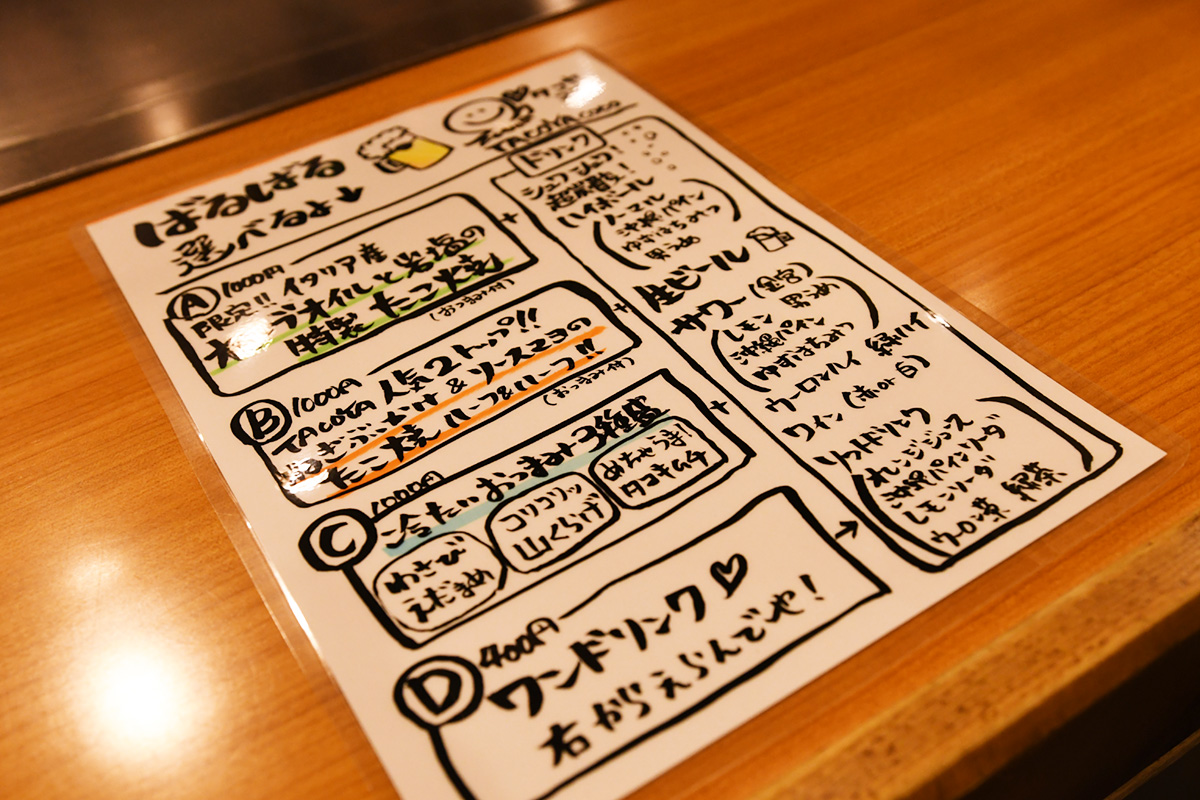 TACOYA coco
ばるばる
選べるよ↓
A 1000円
限定!! イタリア産
オイルと岩塩の
特製 たこ焼
(おつまみ付)
+
B 1000円
TACOYA 人気2トップ!!
ねぎぶっかけ & ソースマヨの
たこ焼 ハーフ&ハーフ!!
(おつまみ付)
+
C 1000円
冷たいおつまみ3種盛
わさび
えだまめ
コリコリッ
山くらげ
めちゃうま!
タコキムチ
+
D 400円
ワンドリンク♡
右からえらんでや!
→
ドリンク
シュワシュワ!
超炭酸!
ハイボール
ノーマル
沖縄パイン
ゆずはちみつ
男うめ
生ビール
サワー(金宮)
男うめ
レモン
沖縄パイン
ゆずはちみつ
ウーロンハイ 緑ハイ
ワイン(赤or白)
ソフトドリンク
オレンジジュース
沖縄パインソーダ
レモンソーダ
ウーロン茶 緑茶